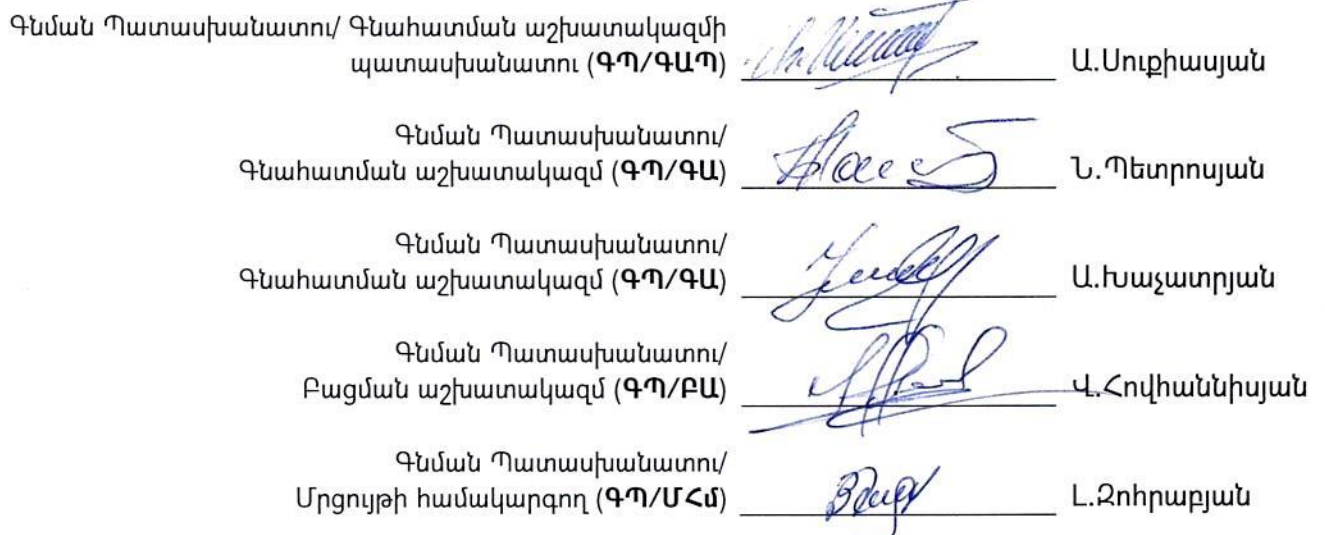 Գնման Պատասխանատու/ Գնահատման աշխատակազմի
պատասխանատու (ԳՊ/ԳԱՊ) Ա.Սուքիասյան
Գնման Պատասխանատու/
Գնահատման աշխատակազմ (ԳՊ/ԳԱ) Ն.Պետրոսյան
Գնման Պատասխանատու/
Գնահատման աշխատակազմ (ԳՊ/ԳԱ) Ա.Խաչատրյան
Գնման Պատասխանատու/
Բացման աշխատակազմ (ԳՊ/ԲԱ) Վ.Հովհաննիսյան
Գնման Պատասխանատու/
Մրցույթի համակարգող (ԳՊ/ՄՀմ) Լ.Զոհրաբյան